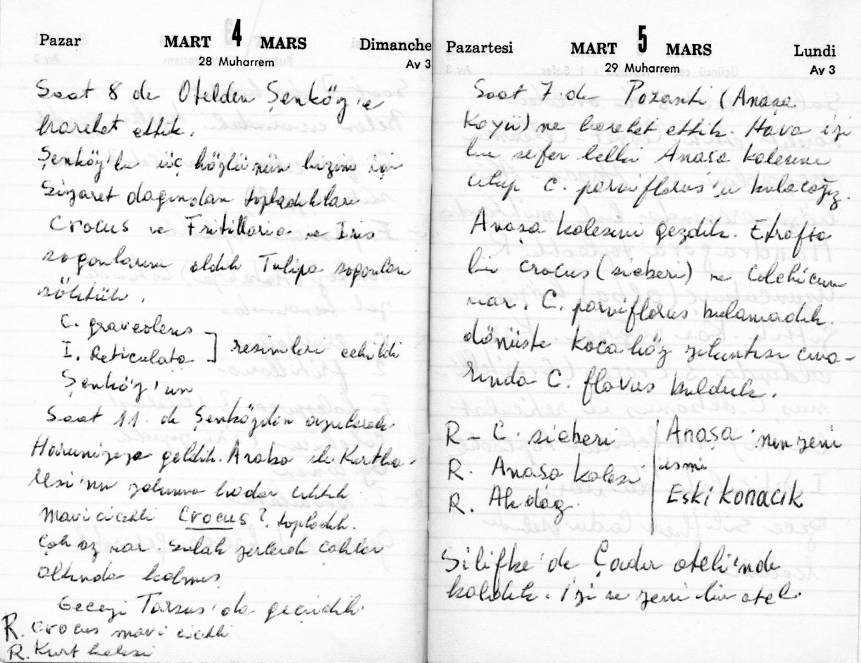 Pazar MART 4 MARS Dimanche
28 Muharrem Av 3
Saat 8 de Otelden Şenköy'e
hareket ettik.
Şenköy'de üç köylünün bizim için
Ziyaret dağından topladıkları
Crocus ve Fritillaria ve Iris
soğanlarını aldık Tulipa soğanları
söktük.
C. graveolens
I. Reticulata ] resimleri çekildi
Şenköy'ün
Saat 11. de Şenköyden ayrılarak
Haruniyeye geldik. Araba ile Kurtka-
lesi'nin yoluna kadar çıktık
Mavi cicekli Crocus? topladık.
Çok az var. Sulak yerlerde çalılar
altında kalmış
Geceyi Tarsus'da geçirdik
R. Crocus mavi cicekli
R. Kurt kalesi
Pazartesi MART 5 MARS Lundi
29 Muharrem Av 3
Saat 7.de Pozantı (Anaşa
Köyü) ne hareket ettik. Hava iyi
bu sefer belki Anaşa kalesine
çıkıp C. parviflorus'u bulacağız.
Anaşa kalesini gezdik. Etrafta
bir crocus (sieberi) ve Colchicum
var. C. parviflorus bulamadık.
dönüşte Kocaköy yıkıntısı civa-
rında C. flavus bulduk.
R - C. sieberi | Anaşa'nın yeni
R. Anaşa kalesi | ismi
R. Akdağ. | Eski Konacık
Silifke'de Çadır oteli'nde
kaldık. İyi ve yeni bir otel.